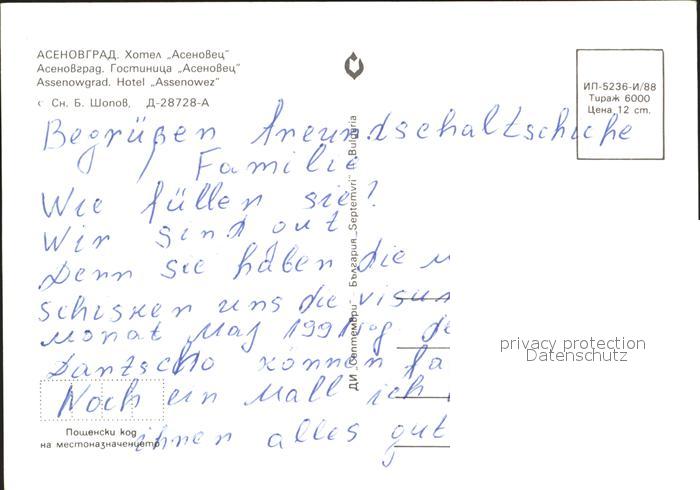 АСЕНОВГРАД. Хотел „Асеновец"
Асеновград. Гостиница „Асеновец"
Assenowgrad. Hotel „Assenowez"
Сн. Б. Шопов, Д-28728-А
ИП-5236-И/88
Тираж 6000
Цена 12 ст.
ДИ „Септември" — България „Septemvri" — Bulgaria
Begrüßen freundschaltschuche
Familie
Wie füllen sie?
Wir sind gut
Denn sie haben die
schisken uns die visum
monat Maj 1991 og. de
Dantscho können fa
Noch ein Mall ich
ihnen alles gut
Пощенски код
на местоназначението
privacy protection
Datenschutz